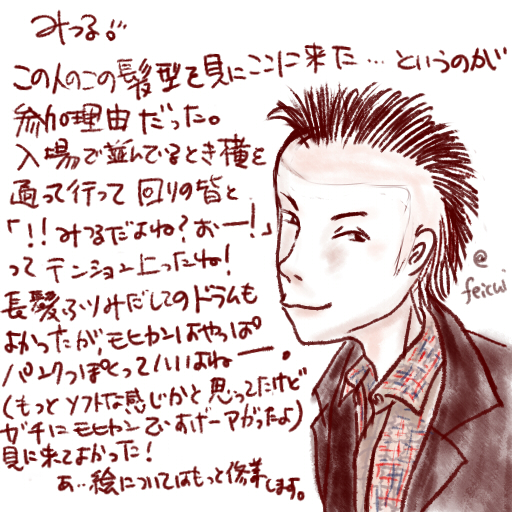 みつる!!
この人のこの髪型を見にここに来た…というのが
参加理由だった。
入場で並んでいるとき横を
通って行って回りの皆と
「!!みつるだよね?おー!」
ってテンション上ったね!
長髪ふりみだしてのドラムも
よかったが、モヒカンはやっぱ
パンクっぽくっていいよねー。
(もっとソフトな感じかと思ってたけど
ガチにモヒカンですげーアがったよ)
見に来てよかった!
あ…絵についてはもっと修業します。
@
feicui